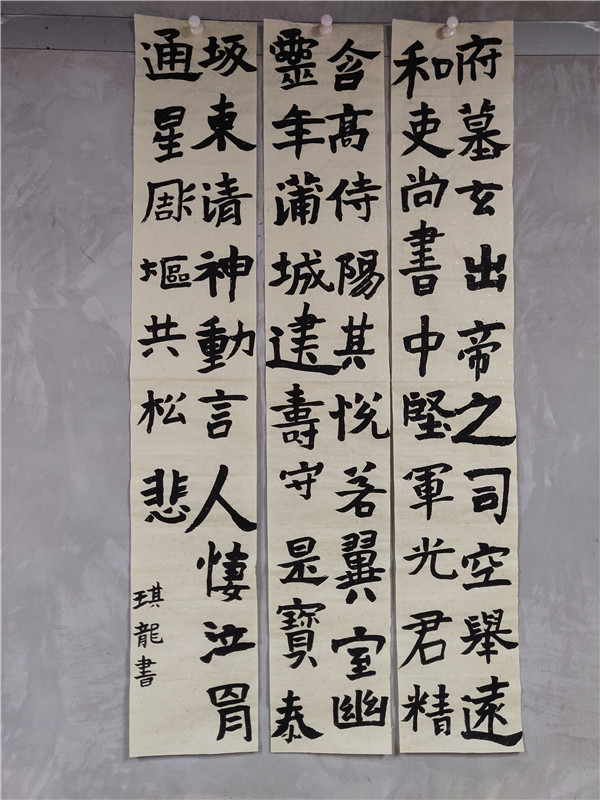 府墓玄出帝之司空舉遠
和吏尚書中堅軍光君精
含高侍陽其悅若翼室幽
靈年蒲城建壽守是寶泰
坂東清神動言人悽泣
通星彫樞共松悲
琪龍書